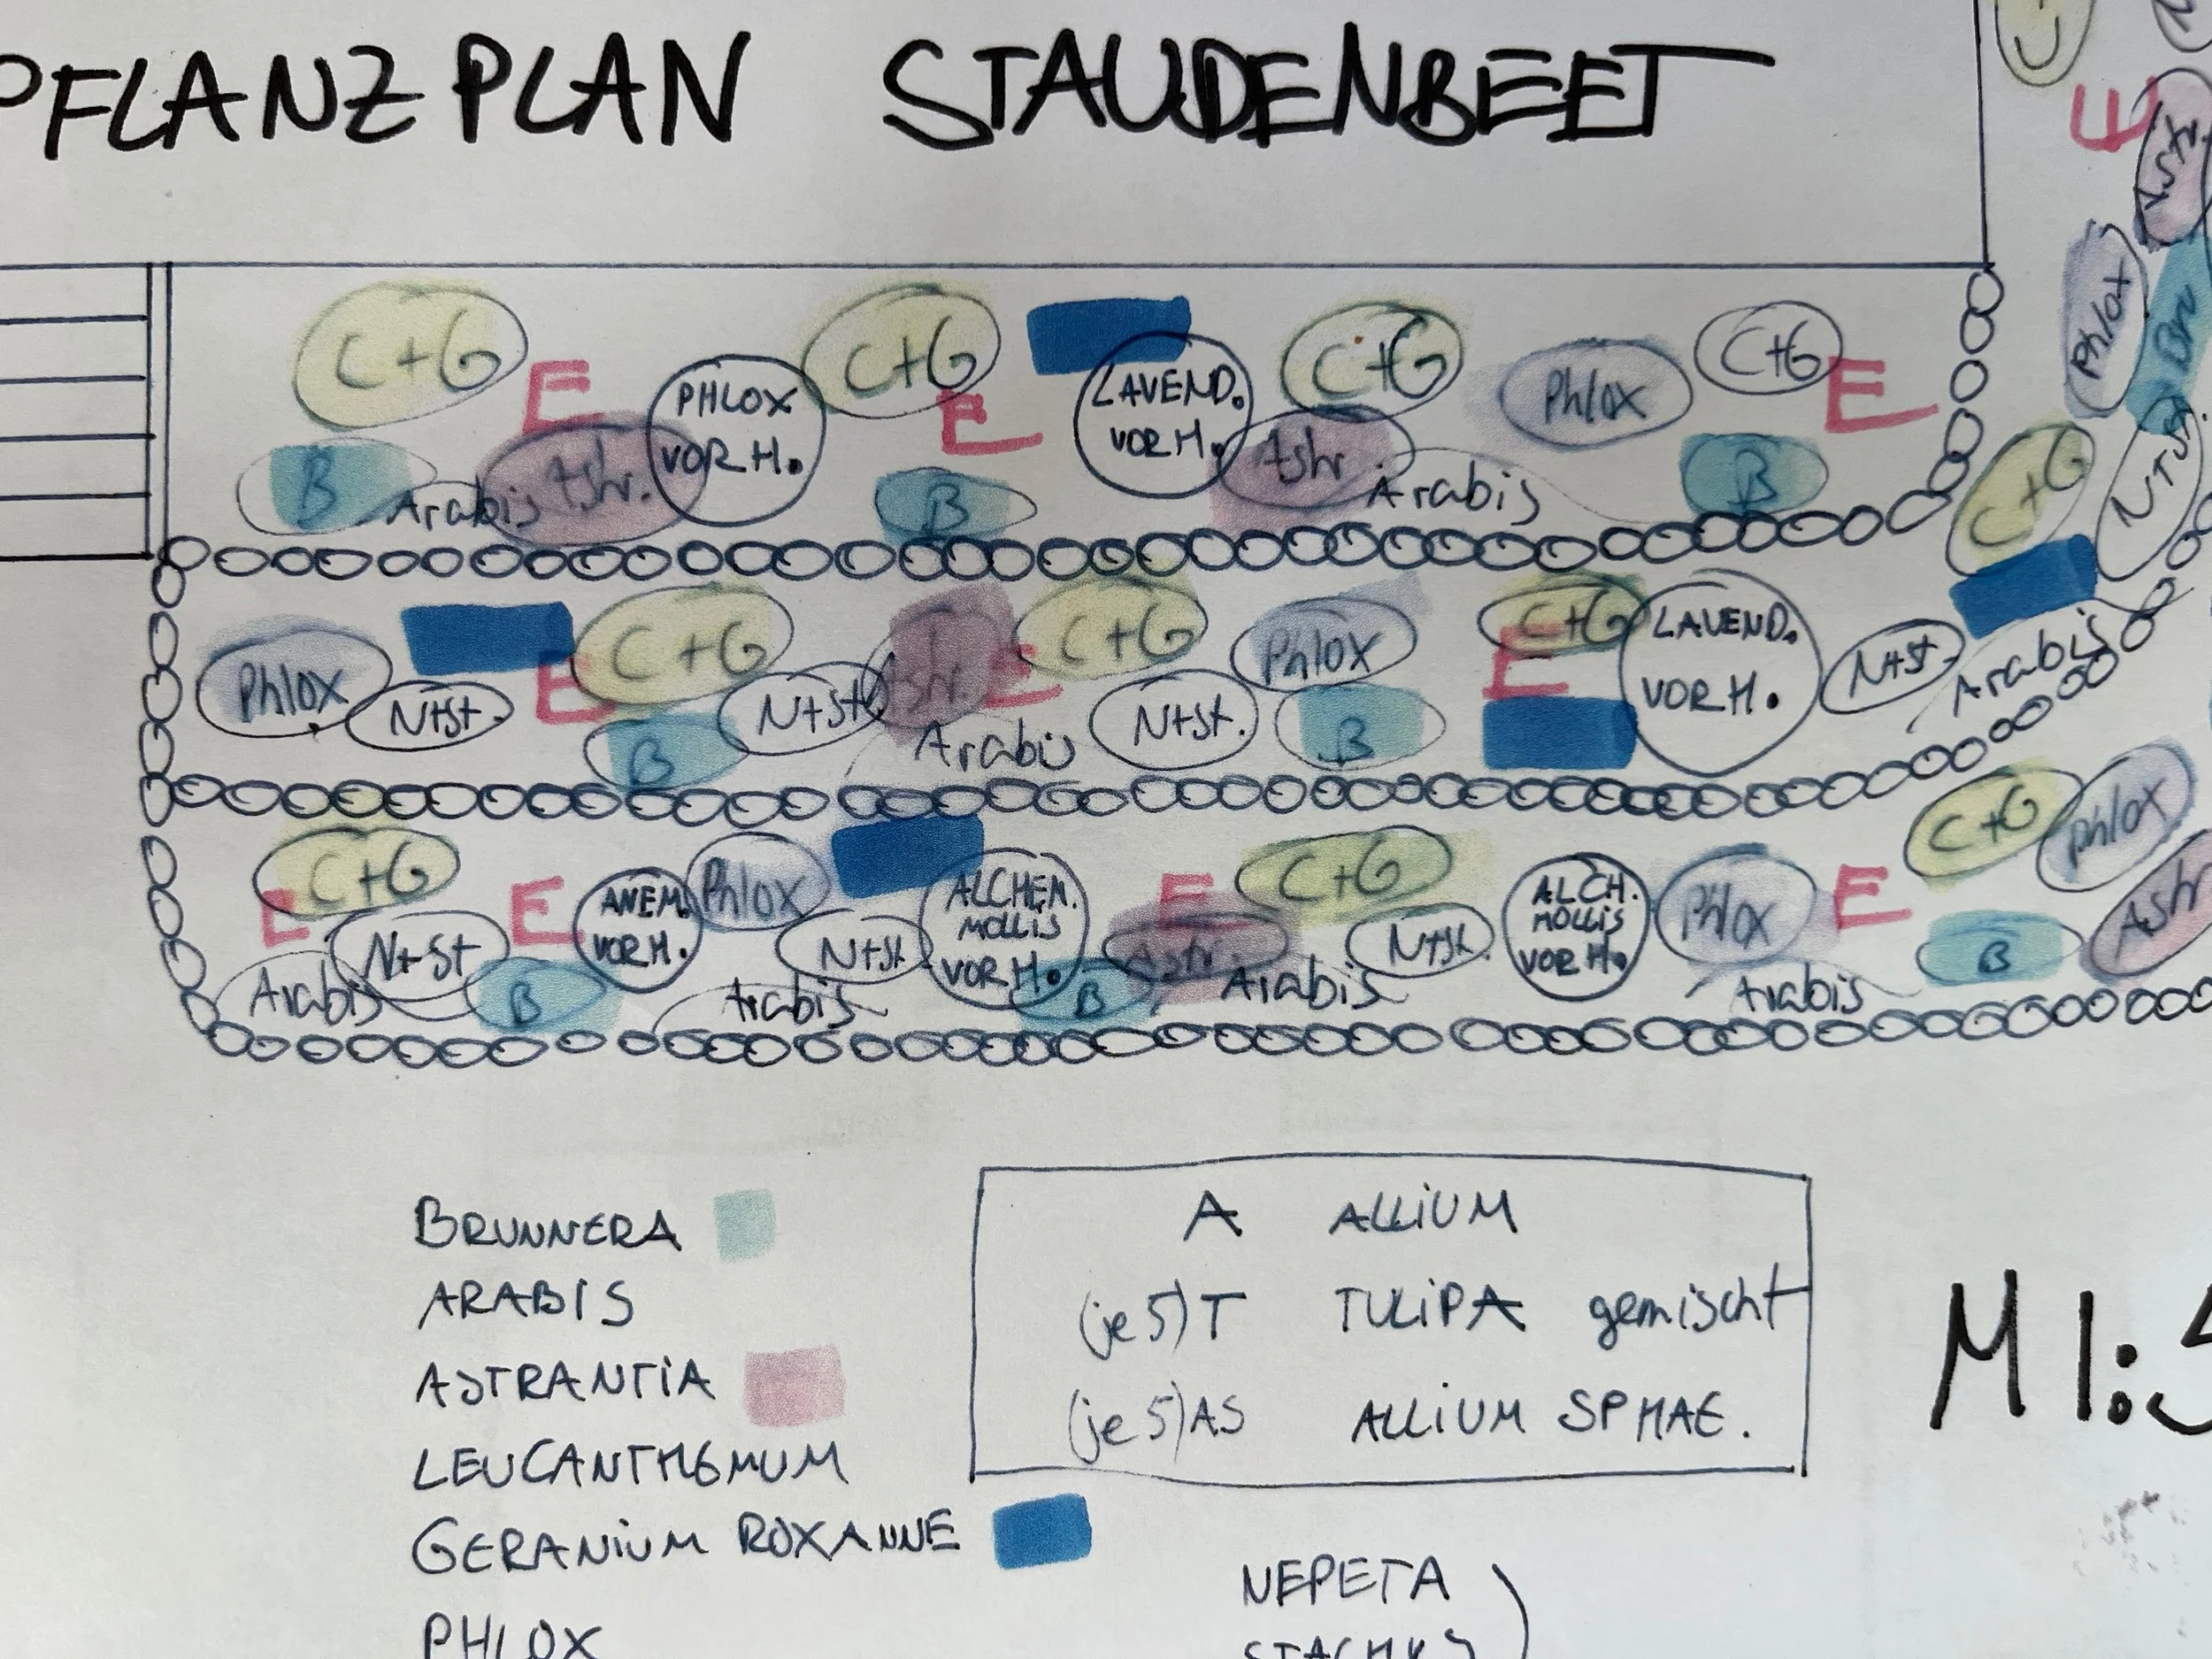 PFLANZPLAN STAUDENBEET
C+G E PHLOX VOR H. C+G E LAVEND. VOR H. C+G Phlox C+G E
B Arabis Astr. B Astr. Arabis B
E Astr.
Phlox Br
C+G N+St.
Phlox N+St. E C+G N+St Astr. E C+G Phlox C+G E LAVEND. VOR H. N+St. Arabis
B Arabis N+St. B
C+G E E ANEM. VOR H. Phlox ALCHEM. MOLLIS VOR H. E C+G ALCH. MOLLIS VOR H. Phlox E C+G Phlox
Arabis N+St B Arabis N+St. B Astr. Arabis N+St. Arabis B Astr
BRUNNERA
ARABIS
ASTRANTIA
LEUCANTHEMUM
GERANIUM ROXANNE
PHLOX
A ALLIUM
(je 5) T TULIPA gemischt
(je 5) AS ALLIUM SPHAE.
M 1:5
NEPETA
STACHYS